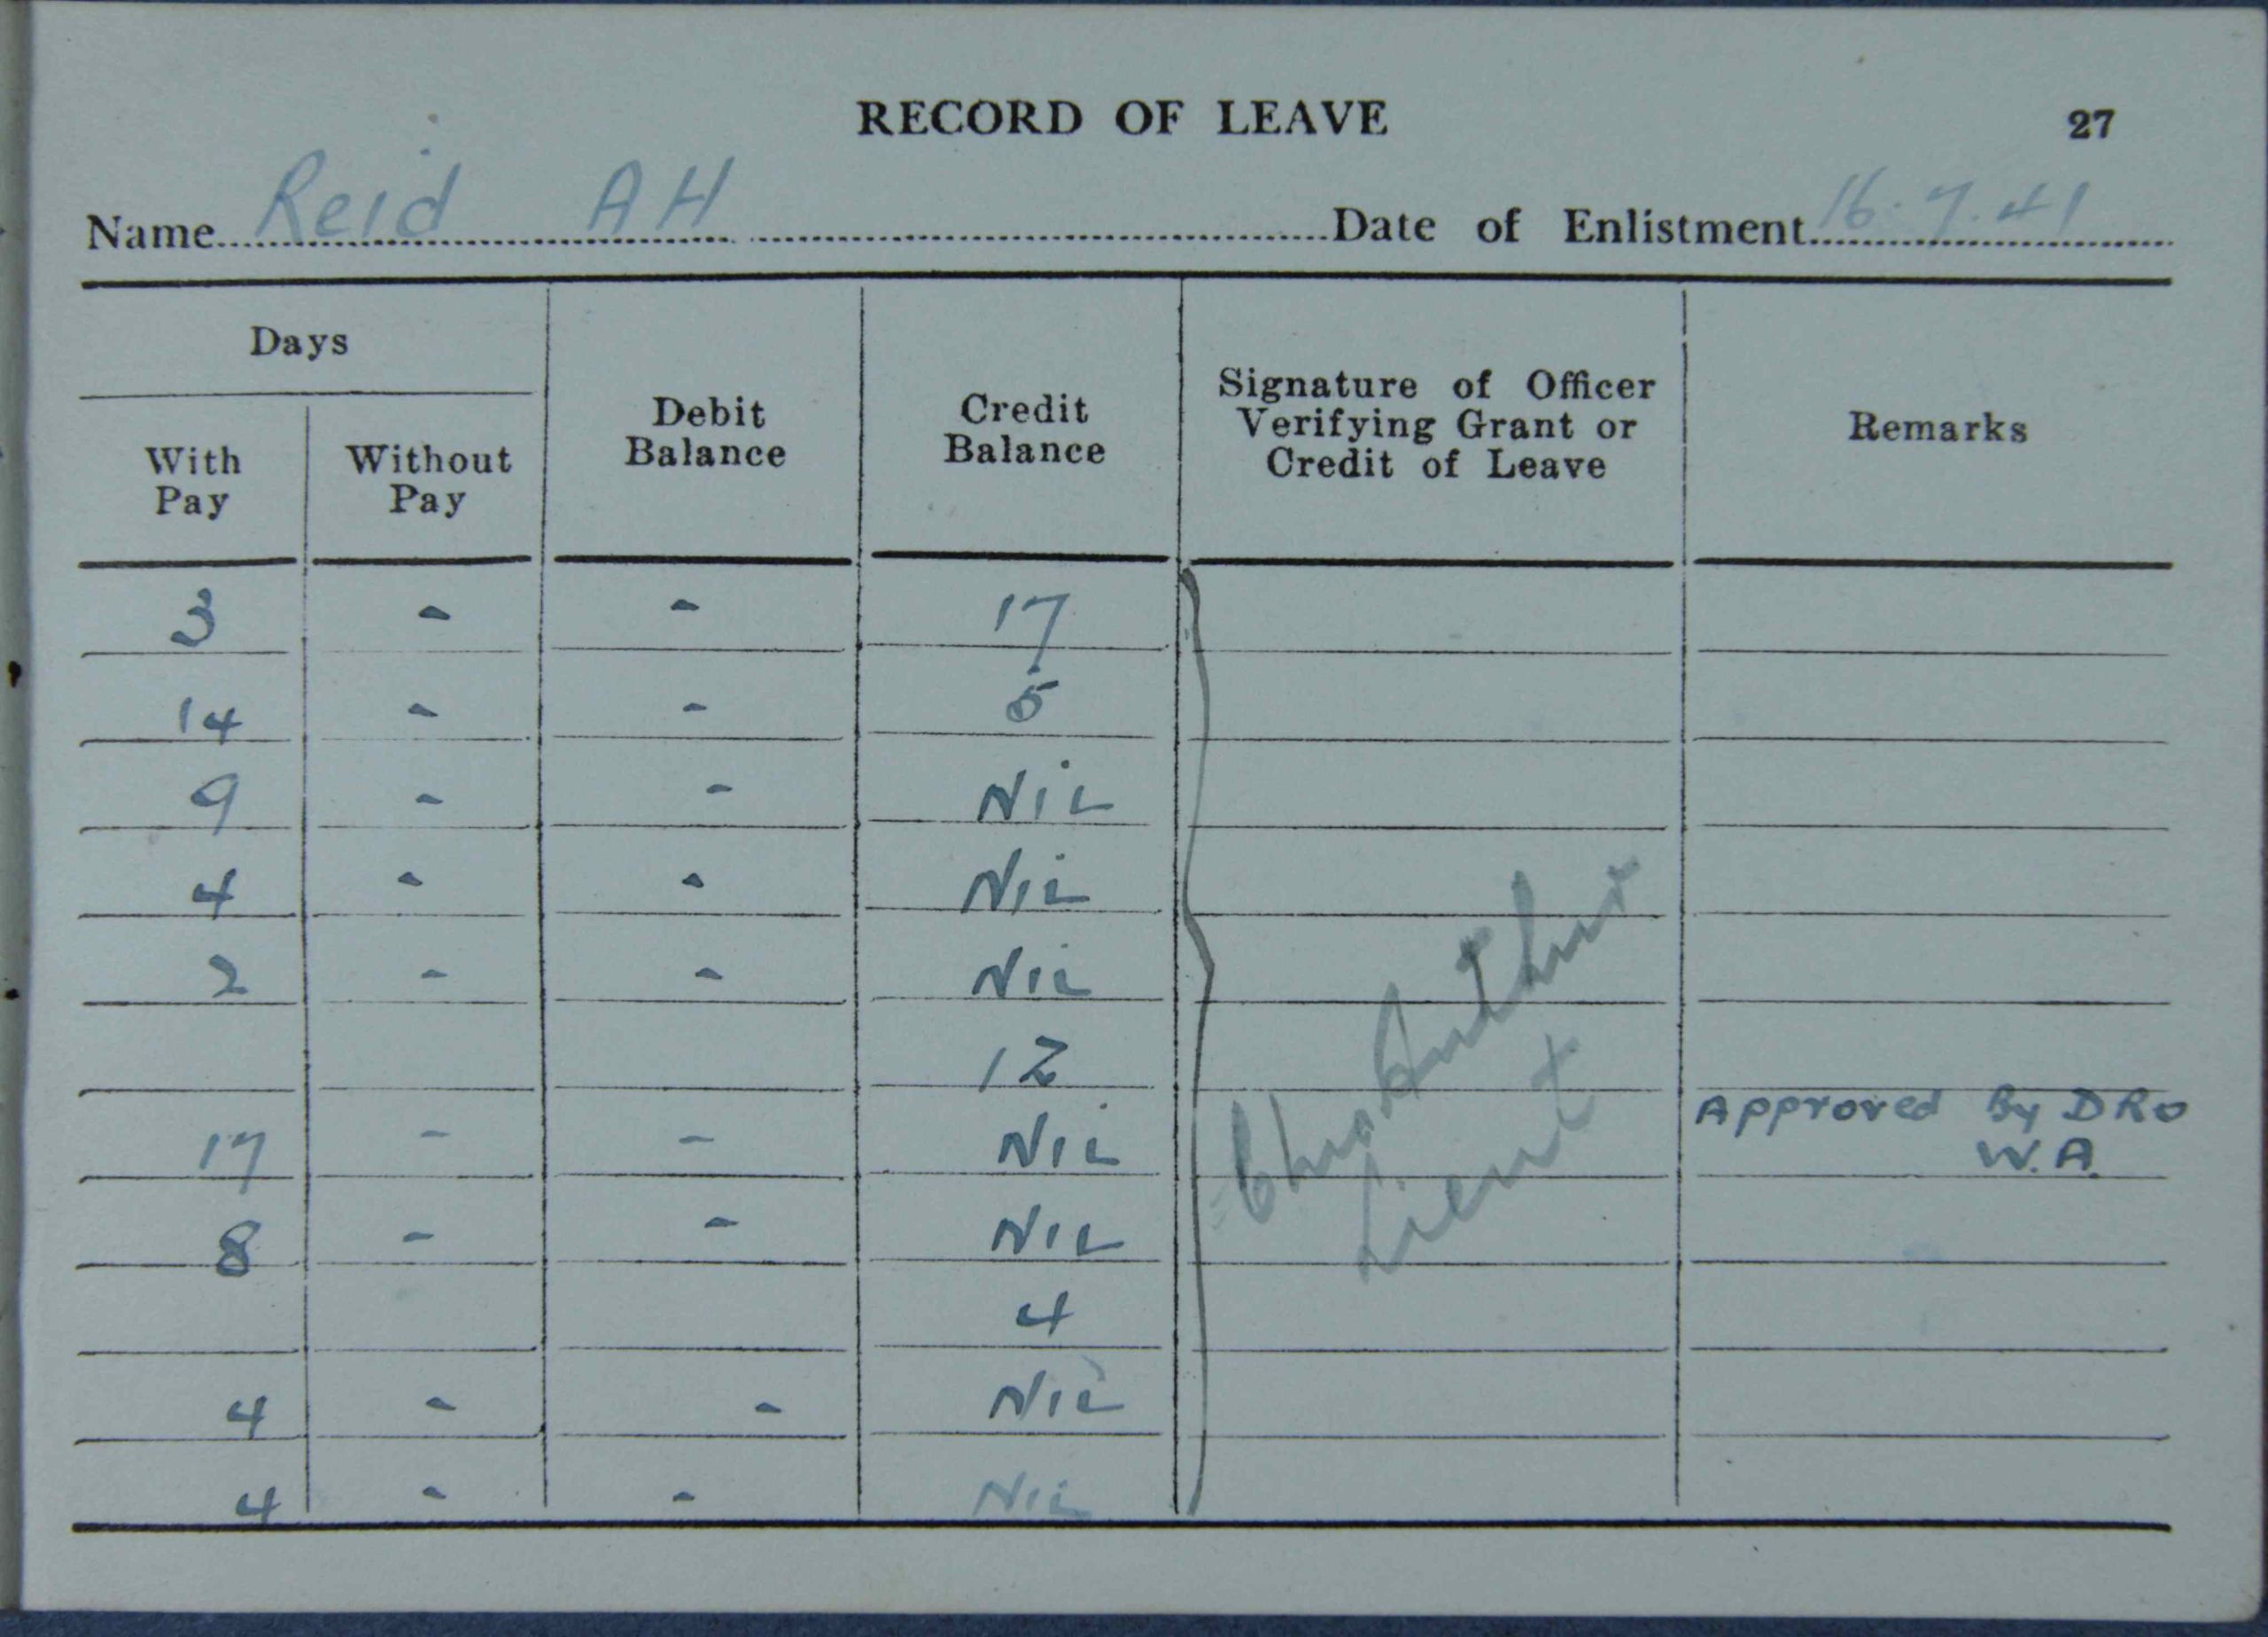 RECORD OF LEAVE 27
Name Reid AH Date of Enlistment 16.7.41
Days
With Pay
Without Pay
Debit Balance
Credit Balance
Signature of Officer Verifying Grant or Credit of Leave
Remarks
3 - - 17
14 - - 5
9 - - Nil
4 - - Nil
2 - - Nil
12
17 - - Nil Approved By DRO W.A.
8 - - Nil
4
4 - - Nil
4 - - Nil
Arthur
Lieut